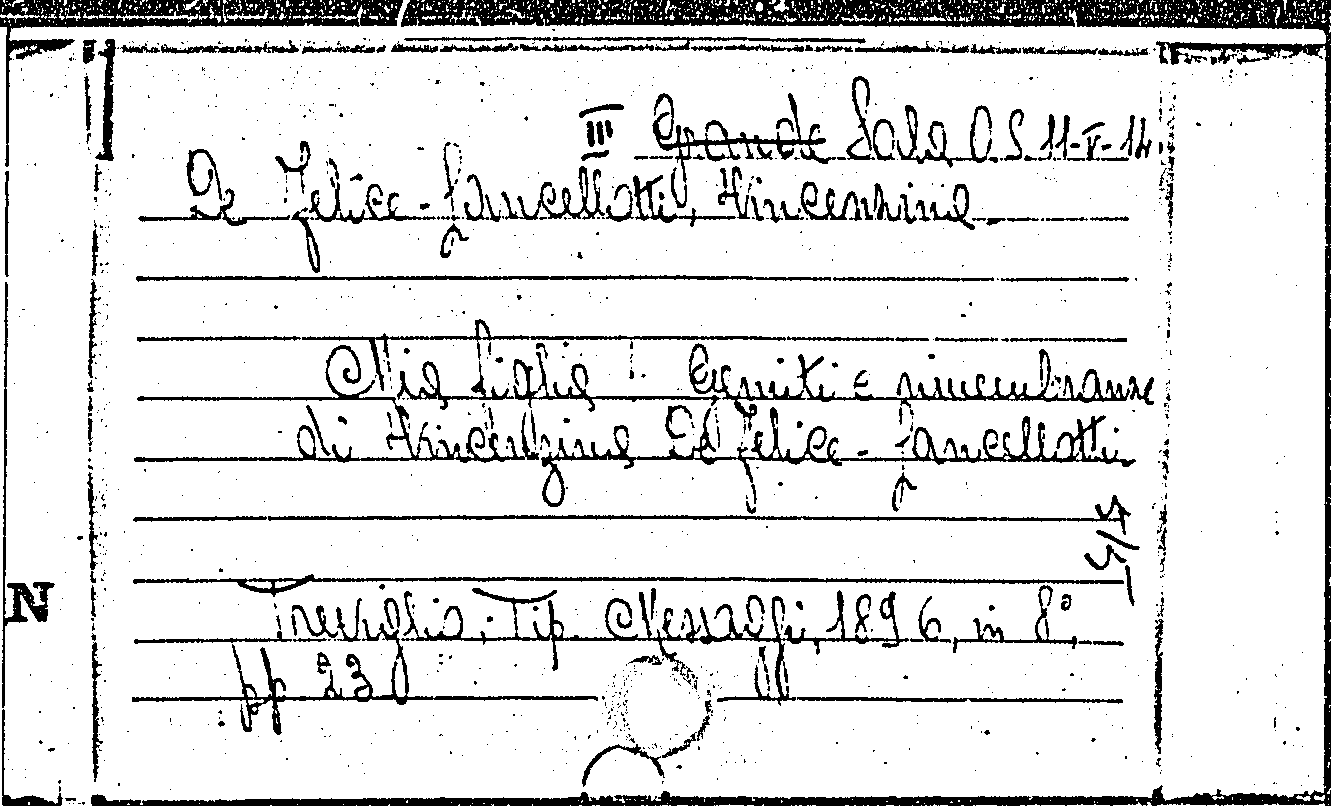 III Grande Sala O.S. 11-V-14.
De Felice-Lancellotti, Vincenzina.
Mia figlia! Gemiti e rimembranze
di Vincenzina De Felice-Lancellotti
Treviglio, Tip. Messaggi, 1896, in 8°,
pp. 23
N